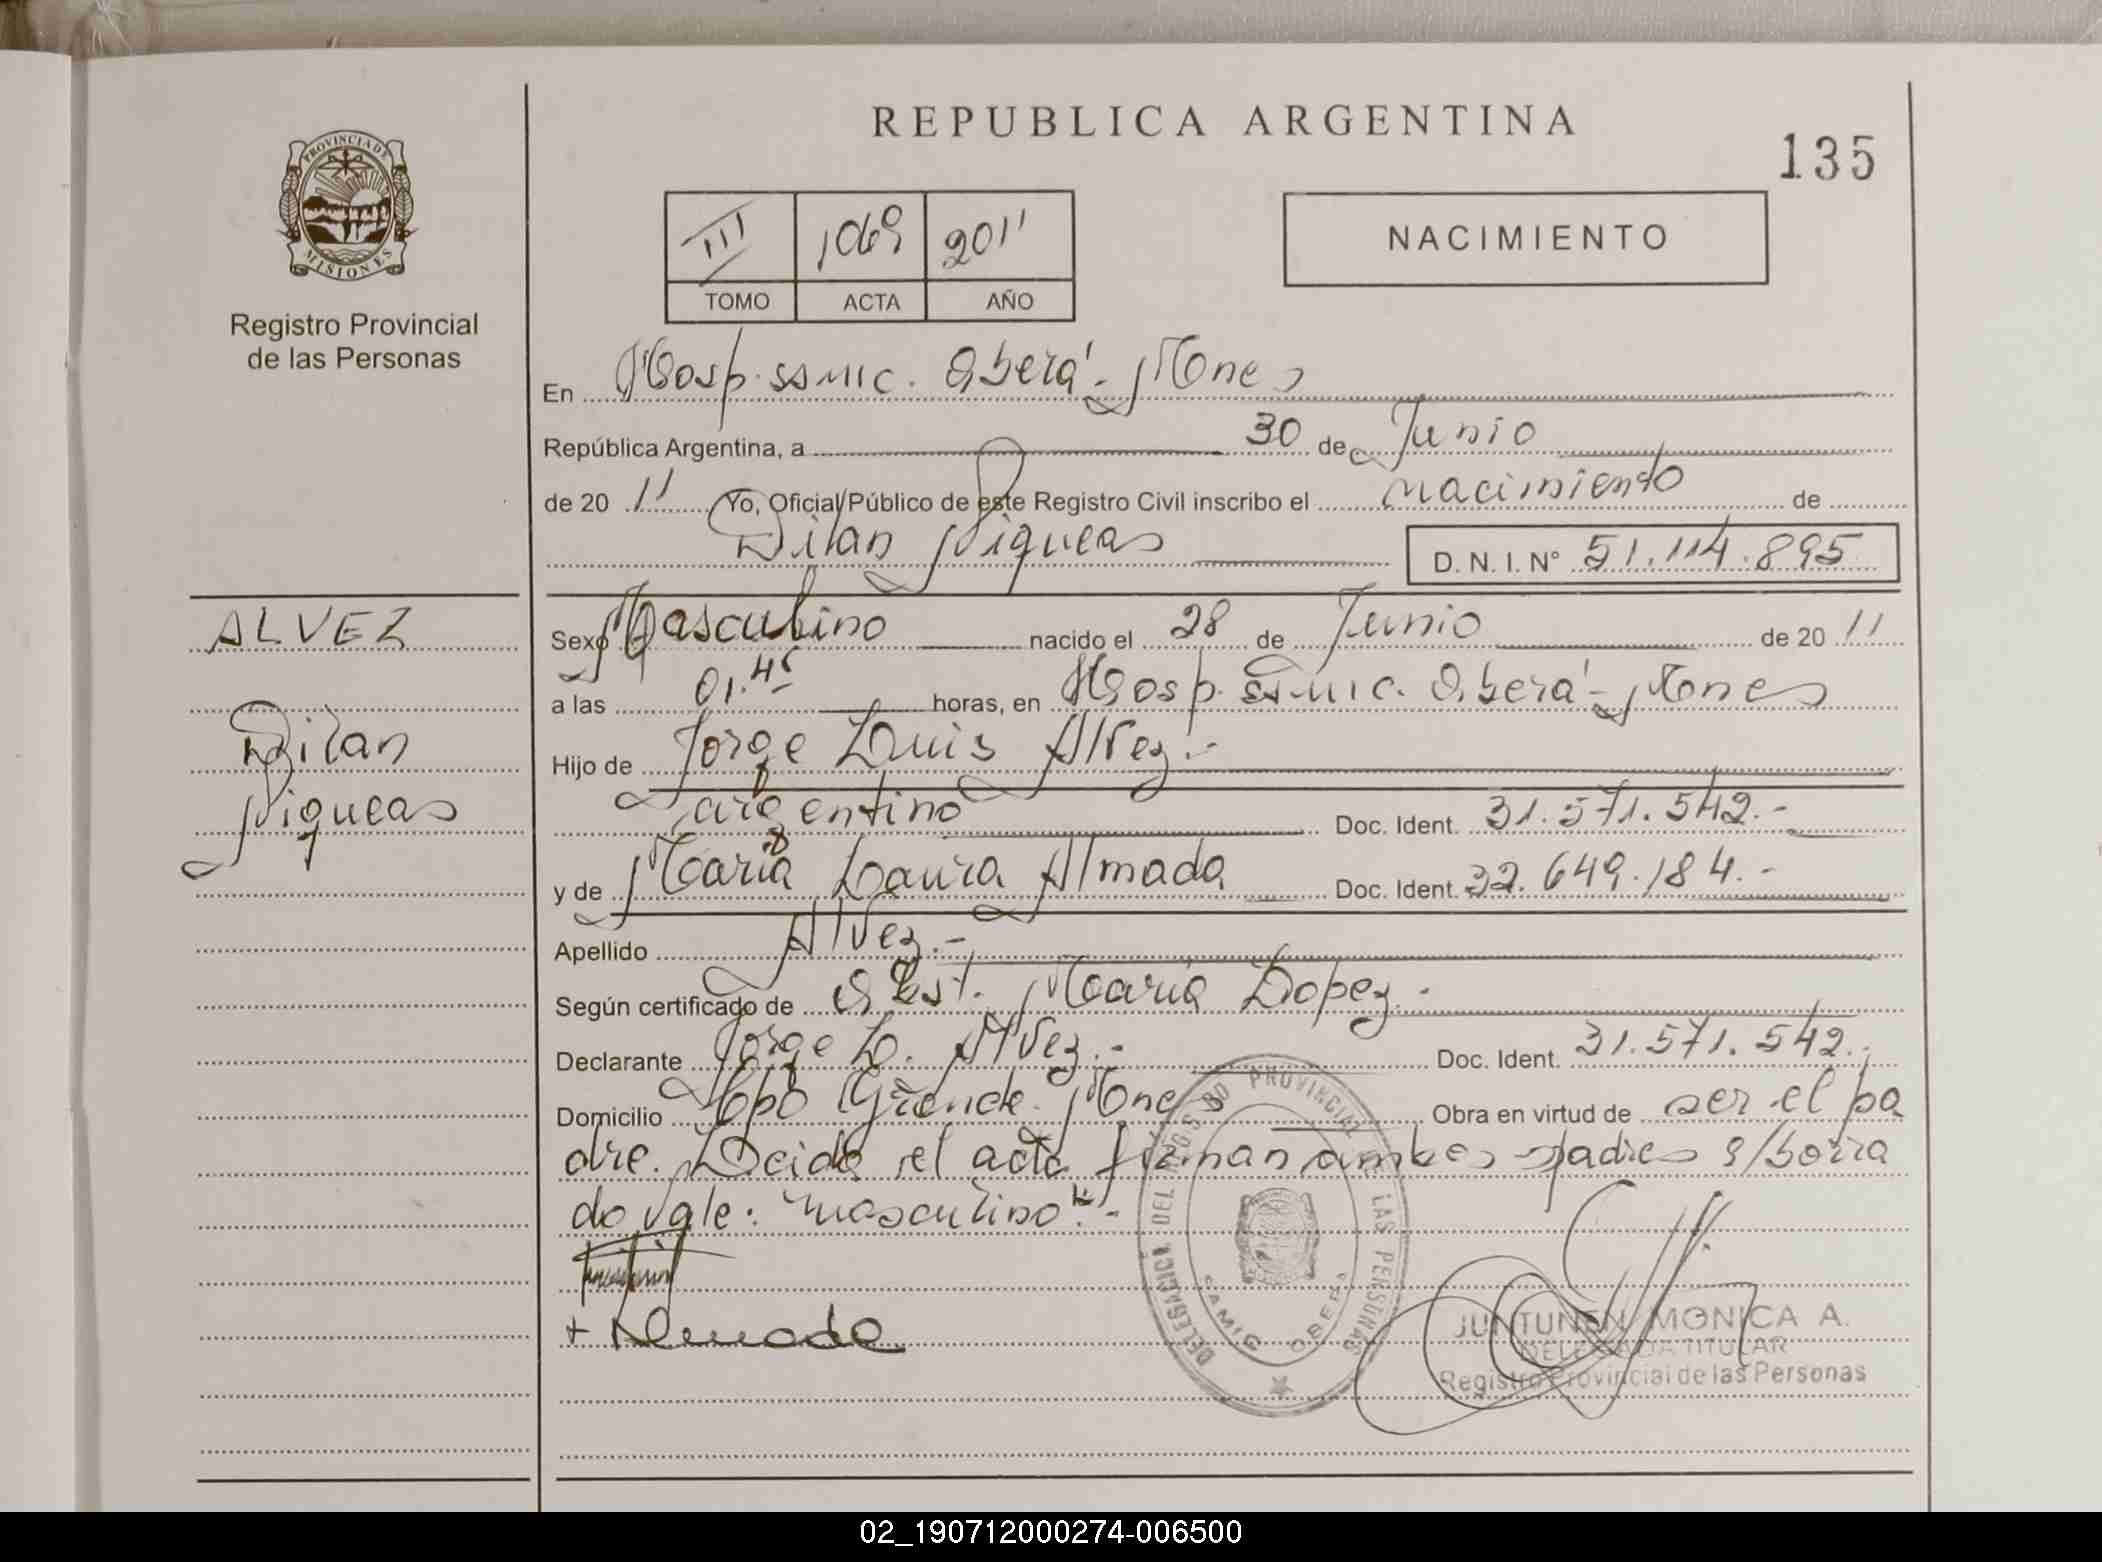 REPUBLICA ARGENTINA
135
PROVINCIA DE
MISIONES
Registro Provincial
de las Personas
III 1069 2011
TOMO ACTA AÑO
NACIMIENTO
En Hosp. SAMIC. Oberá - Mnes
República Argentina, a 30 de Junio
de 20 11 Yo, Oficial Público de este Registro Civil inscribo el nacimiento de
Dilan Piqueas
D. N. I. N° 51.114.895
ALVEZ
Dilan
Piqueas
Sexo Masculino nacido el 28 de Junio de 20 11
a las 01.45 horas, en Hosp. SAMIC. Oberá - Mnes
Hijo de Jorge Luis Alvez.-
argentino Doc. Ident. 31.571.542.-
y de María Laura Almada Doc. Ident. 32.649.184.-
Apellido Alvez.-
Según certificado de Obst. María Lopez.-
Declarante Jorge L. Alvez.- Doc. Ident. 31.571.542.-
Domicilio Cpo Grande. Mnes Obra en virtud de ser el pa
dre. Leida el acta firman ambos padres s/borra
do vale: "masculino".-
+ Almada
DELEGACION DEL REGISTRO PROVINCIAL DE LAS PERSONAS
SAMIC OBERA
JUNTUNEN MONICA A.
DELEGADA TITULAR
Registro Provincial de las Personas
02_190712000274-006500